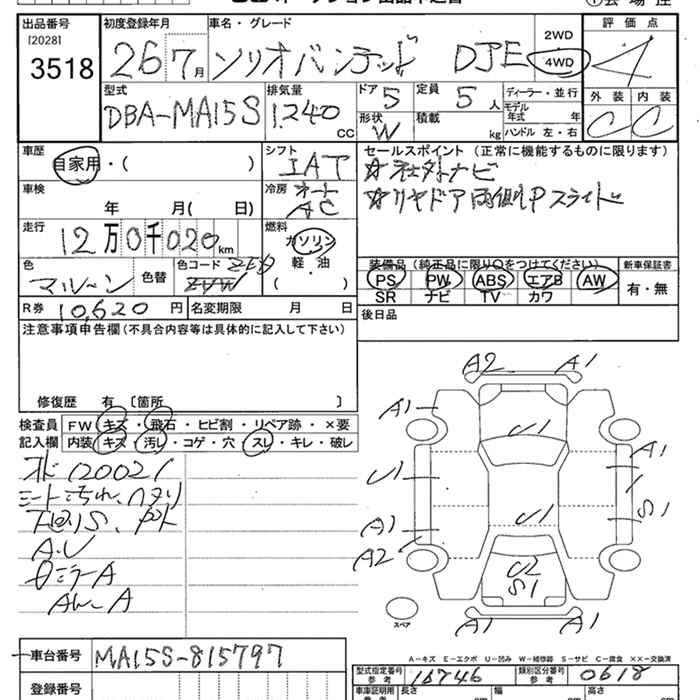 出品番号 初度登録年月 車名・グレード 2WD 評価点
[2028]
3518 26 7月 ソリオバンデット DJE 4WD 4
型式 排気量 ドア 定員 ディーラー・並行 外装 内装
DBA-MA15S 1240CC 5 5人 モデル年式 年 C C
形状 積載
W kg ハンドル 左・右
車歴 シフト セールスポイント(正常に機能するものに限ります)
自家用・( ) IAT ☆社外ナビ
車検 冷房 オート ☆リヤドア両側Pスライド
年 月( 日) AC
走行 燃料
12万0千020km ガソリン
軽・油
( )
色 色替 色コード 装備品(純正品に限り○をつけてください) 新車保証書
マルーン PS PW ABS エアB AW 有・無
SR ナビ TV カワ
R券 10,620円 名変期限 月 日 後日品
注意事項申告欄(不具合内容等は具体的に記入して下さい)
修復歴 有 〔箇所 〕
検査員 FW キズ・飛石・ヒビ割・リペア跡・×要
記入欄 内装 キズ・汚レ・コゲ・穴・スレ・キレ・破レ
シート汚れ、ヘタリ
A.U
ミラーA
A2 A1
A1 U1
A1
U1 1
U1 S1
A1
A2 U2
S1
スペア A1 A1
A-キズ E-エクボ U-凹み W-補修跡 S-サビ C-腐食 ××-交換済
車台番号 MA15S-815797
型式指定番号 参考 16746 類別区分番号 参考 0618
登録番号
車庫証明用 参考 長さ 幅 高さ